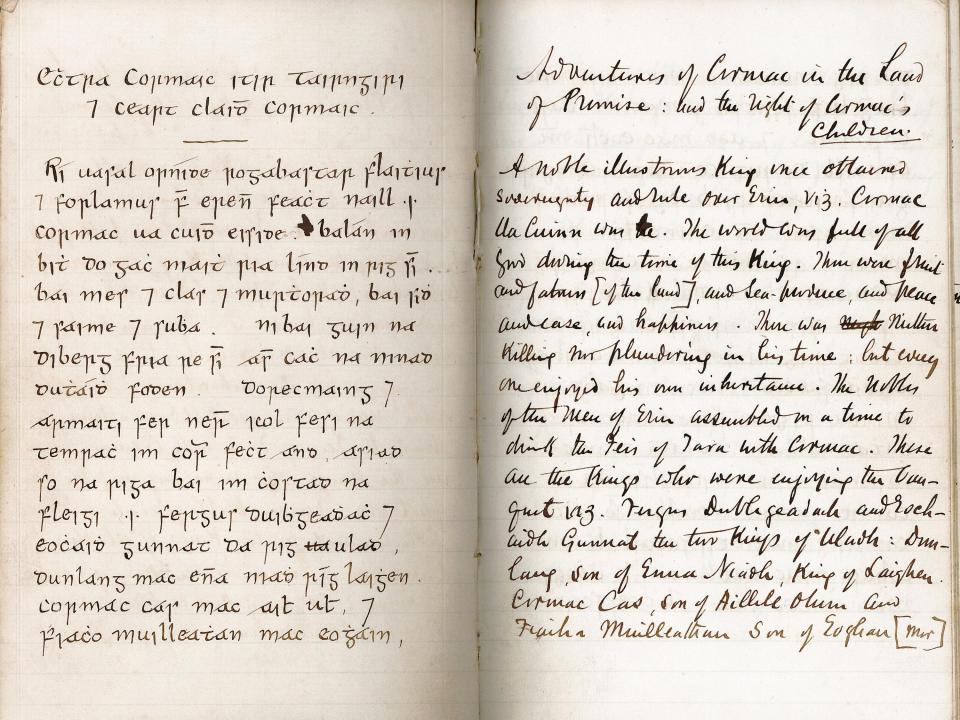 Eċtra Cormaic itir Tairngiri
⁊ Ceart claiḋ Cormaic.
Rí uasal
⁊ forlamus
cormac ua cuiḋ eiside. balán in
bit do gaċ mait ria línd in rig
bai mes ⁊ clas ⁊ murtoraḋ, bai
⁊ saime ⁊ suba. ni bai guin na
diberg fria re caċ na ninad
foden. dorecmaing ⁊
fesi na
fect and
so na riga bai im ċostaḋ na
fleigi .i. fergus duibgeadaċ ⁊
eoċaiḋ gunnat da rig ulaḋ,
dunlang mac eña niaḋ rig laigen.
cormac cas mac ⁊
muilleatan mac eogain,
Adventures of Cormac in the Land
of Promise: and the right of Cormac's
Children.
A noble illustrious King once obtained
sovereignty and rule over Erin, viz. Cormac
Ua Cuinn was he. The world was full of all
good during the time of this King. There were fruit
and fatness [of the land], and sea-produce, and peace
and ease, and happiness. There was Neither
Killing nor plundering in his time: but every
one enjoyed his own inheritance. The Nobles
of the Men of Erin assembled on a time to
drink the Feis of Tara with Cormac. These
are the Kings who were enjoying the ban-
quet viz. Fergus Dubhgeadach and Eoch-
aidh Gunnat the two Kings of Uladh: Dun-
lang, son of Enna Niadh, King of Laighen.
Cormac Cas, son of Aillill Olum and
Fiacha Muilleathan Son of Eoghan [mor]